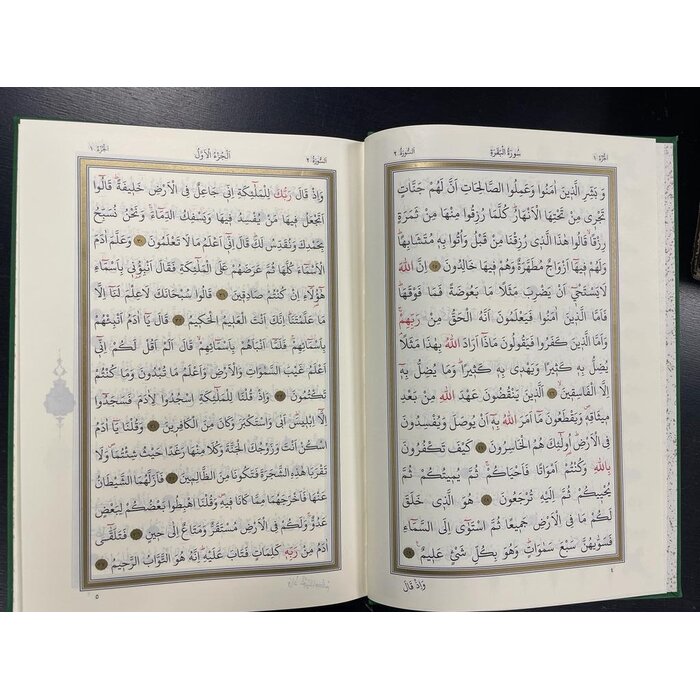 الجزء ١
سورة البقرة
السورة ٢
وَبَشِّرِ الَّذِينَ اٰمَنُوا وَعَمِلُوا الصَّالِحَاتِ اَنَّ لَهُمْ جَنَّاتٍ
تَجْرِى مِنْ تَحْتِهَا الْاَنْهَارُ كُلَّمَا رُزِقُوا مِنْهَا مِنْ ثَمَرَةٍ
رِزْقًا قَالُوا هٰذَا الَّذِى رُزِقْنَا مِنْ قَبْلُ وَاُتُوا بِهٖ مُتَشَابِهًا
وَلَهُمْ فِيهَا اَزْوَاجٌ مُطَهَّرَةٌ وَهُمْ فِيهَا خَالِدُونَ ٢٥ اِنَّ اللّٰهَ
لَا يَسْتَحْيٖ اَنْ يَضْرِبَ مَثَلًا مَا بَعُوضَةً فَمَا فَوْقَهَا
فَاَمَّا الَّذِينَ اٰمَنُوا فَيَعْلَمُونَ اَنَّهُ الْحَقُّ مِنْ رَبِّهِمْ
وَاَمَّا الَّذِينَ كَفَرُوا فَيَقُولُونَ مَاذَا اَرَادَ اللّٰهُ بِهٰذَا مَثَلًا
يُضِلُّ بِهٖ كَثِيرًا وَيَهْدِى بِهٖ كَثِيرًا وَمَا يُضِلُّ بِهٖ
اِلَّا الْفَاسِقِينَ ٢٦ اَلَّذِينَ يَنْقُضُونَ عَهْدَ اللّٰهِ مِنْ بَعْدِ
مِيثَاقِهٖ وَيَقْطَعُونَ مَا اَمَرَ اللّٰهُ بِهٖ اَنْ يُوصَلَ وَيُفْسِدُونَ
فِى الْاَرْضِ اُولٰئِكَ هُمُ الْخَاسِرُونَ ٢٧ كَيْفَ تَكْفُرُونَ
بِاللّٰهِ وَكُنْتُمْ اَمْوَاتًا فَاَحْيَاكُمْ ثُمَّ يُمِيتُكُمْ ثُمَّ
يُحْيِيكُمْ ثُمَّ اِلَيْهِ تُرْجَعُونَ ٢٨ هُوَ الَّذِى خَلَقَ
لَكُمْ مَا فِى الْاَرْضِ جَمِيعًا ثُمَّ اسْتَوٰى اِلَى السَّمَاءِ
فَسَوّٰيهُنَّ سَبْعَ سَمٰوَاتٍ وَهُوَ بِكُلِّ شَيْءٍ عَلِيمٌ ٢٩
٤
وَاِذْ قَالَ
الجزء ١
اَلْجُزْءُ الْاَوَّلُ
السورة ٢
وَاِذْ قَالَ رَبُّكَ لِلْمَلٰئِكَةِ اِنِّى جَاعِلٌ فِى الْاَرْضِ خَلِيفَةً قَالُوا
اَتَجْعَلُ فِيهَا مَنْ يُفْسِدُ فِيهَا وَيَسْفِكُ الدِّمَاءَ وَنَحْنُ نُسَبِّحُ
بِحَمْدِكَ وَنُقَدِّسُ لَكَ قَالَ اِنِّى اَعْلَمُ مَا لَا تَعْلَمُونَ ٣٠ وَعَلَّمَ اٰدَمَ
الْاَسْمَاءَ كُلَّهَا ثُمَّ عَرَضَهُمْ عَلَى الْمَلٰئِكَةِ فَقَالَ اَنْبِؤُنِى بِاَسْمَاءِ
هٰؤُلَاءِ اِنْ كُنْتُمْ صَادِقِينَ ٣١ قَالُوا سُبْحَانَكَ لَا عِلْمَ لَنَا اِلَّا
مَا عَلَّمْتَنَا اِنَّكَ اَنْتَ الْعَلِيمُ الْحَكِيمُ ٣٢ قَالَ يَا اٰدَمُ اَنْبِئْهُمْ
بِاَسْمَائِهِمْ فَلَمَّا اَنْبَاَهُمْ بِاَسْمَائِهِمْ قَالَ اَلَمْ اَقُلْ لَكُمْ اِنِّى
اَعْلَمُ غَيْبَ السَّمٰوَاتِ وَالْاَرْضِ وَاَعْلَمُ مَا تُبْدُونَ وَمَا كُنْتُمْ
تَكْتُمُونَ ٣٣ وَاِذْ قُلْنَا لِلْمَلٰئِكَةِ اسْجُدُوا لِاٰدَمَ فَسَجَدُوا
اِلَّا اِبْلِيسَ اَبٰى وَاسْتَكْبَرَ وَكَانَ مِنَ الْكَافِرِينَ ٣٤ وَقُلْنَا يَا اٰدَمُ
اسْكُنْ اَنْتَ وَزَوْجُكَ الْجَنَّةَ وَكُلَا مِنْهَا رَغَدًا حَيْثُ شِئْتُمَا وَلَا
تَقْرَبَا هٰذِهِ الشَّجَرَةَ فَتَكُونَا مِنَ الظَّالِمِينَ ٣٥ فَاَزَلَّهُمَا الشَّيْطَانُ
عَنْهَا فَاَخْرَجَهُمَا مِمَّا كَانَا فِيهِ وَقُلْنَا اهْبِطُوا بَعْضُكُمْ لِبَعْضٍ
عَدُوٌّ وَلَكُمْ فِى الْاَرْضِ مُسْتَقَرٌّ وَمَتَاعٌ اِلٰى حِينٍ ٣٦ فَتَلَقّٰى
اٰدَمُ مِنْ رَبِّهٖ كَلِمَاتٍ فَتَابَ عَلَيْهِ اِنَّهُ هُوَ التَّوَّابُ الرَّحِيمُ ٣٧
٥